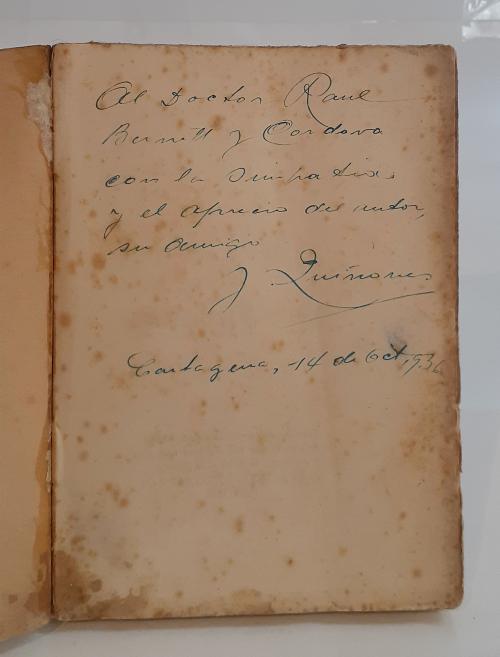 Al Doctor Raul
Bernett y Cordova
con la simpatia
y el aprecio del autor,
su amigo
J. Quiñones
Cartagena, 14 de Oct, 936